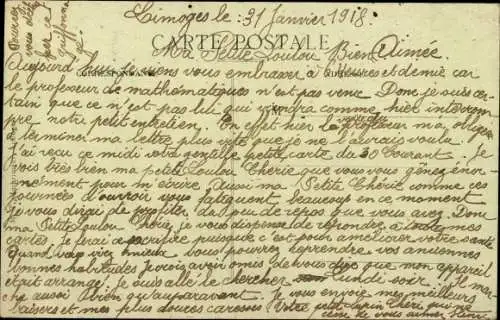 Limoges le : 31 Janvier 1918.
CARTE POSTALE
Ma Petite Loulou Bien Aimée
Aujourd'hui je viens vous embrasser à heures et demie car
CORRESPONDANCE
le professeur de mathématiques n'est pas venu. Donc je suis cer-
tain que ce n'est pas lui qui viendra comme hier interrom-
pre notre petit entretien. En effet hier le professeur m'a obligé
à terminer ma lettre plus vite que je ne l'aurais voulu.
J'ai reçu ce midi votre gentille petite carte du 30 Courant. Je
vois très bien ma petite Loulou Chérie que vous vous gênez énor-
mément pour m'écrire. Aussi ma Petite Chérie comme ces
journées d'ouvroir vous fatiguent beaucoup en ce moment
je vous dirai de profiter du peu de repos que vous avez. Donc
ma Petite Loulou Chérie, je vous dispense de répondre à toutes mes
cartes, je ferai ce sacrifice puisque c'est pour améliorer votre santé
Quand vous irez mieux vous pourrez reprendre vos anciennes
bonnes habitudes. Je vois avoir omis de vous dire que mon appareil
était arrangé. Je suis allé le chercher lundi soir. Il
che aussi bien qu'auparavant. Je vous envoie mes meilleurs
baisers et mes plus douces caresses Votre petit Chéri qui ne
cesse de vous aimer